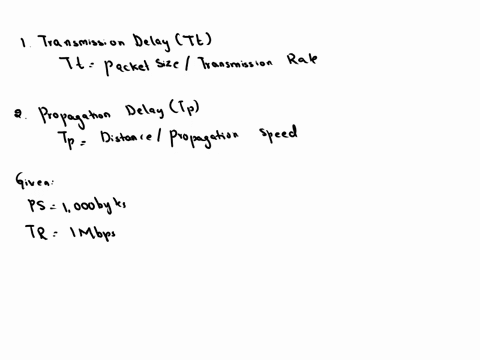 1. Transmission Delay (Tt)
Tt = Packet Size / Transmission Rate
2. Propagation Delay (Tp)
Tp = Distance / Propagation Speed
Given:
PS = 1,000 bytes
TR = 1 Mbps